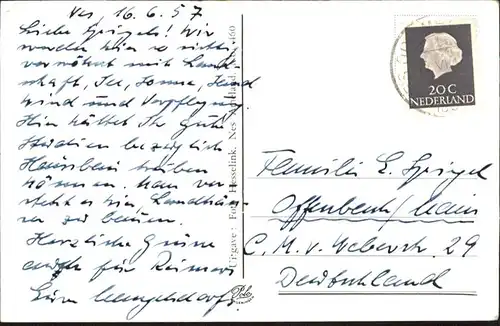 Nes, 16.6.57
Liebe Spiegels! Wir
werden hier so richtig
verwöhnt mit Land-
schaft, See, Sonne, Sand
Wind und Verpflegung.
Hier hättet Ihr gute
Studien bezüglich
Hausbau treiben
können. Man ver-
steht es hier, Landhäu-
ser zu bauen.
Herzliche Grüsse
auch für Reimers
Eure Mengelsdorfs
Uitgave: Foto Hesselink, Nes Ameland, Tel.
20 C
NEDERLAND
Familie E. Spiegel
Offenbach/Main
C. M. v. Weberstr. 29
Deutschland